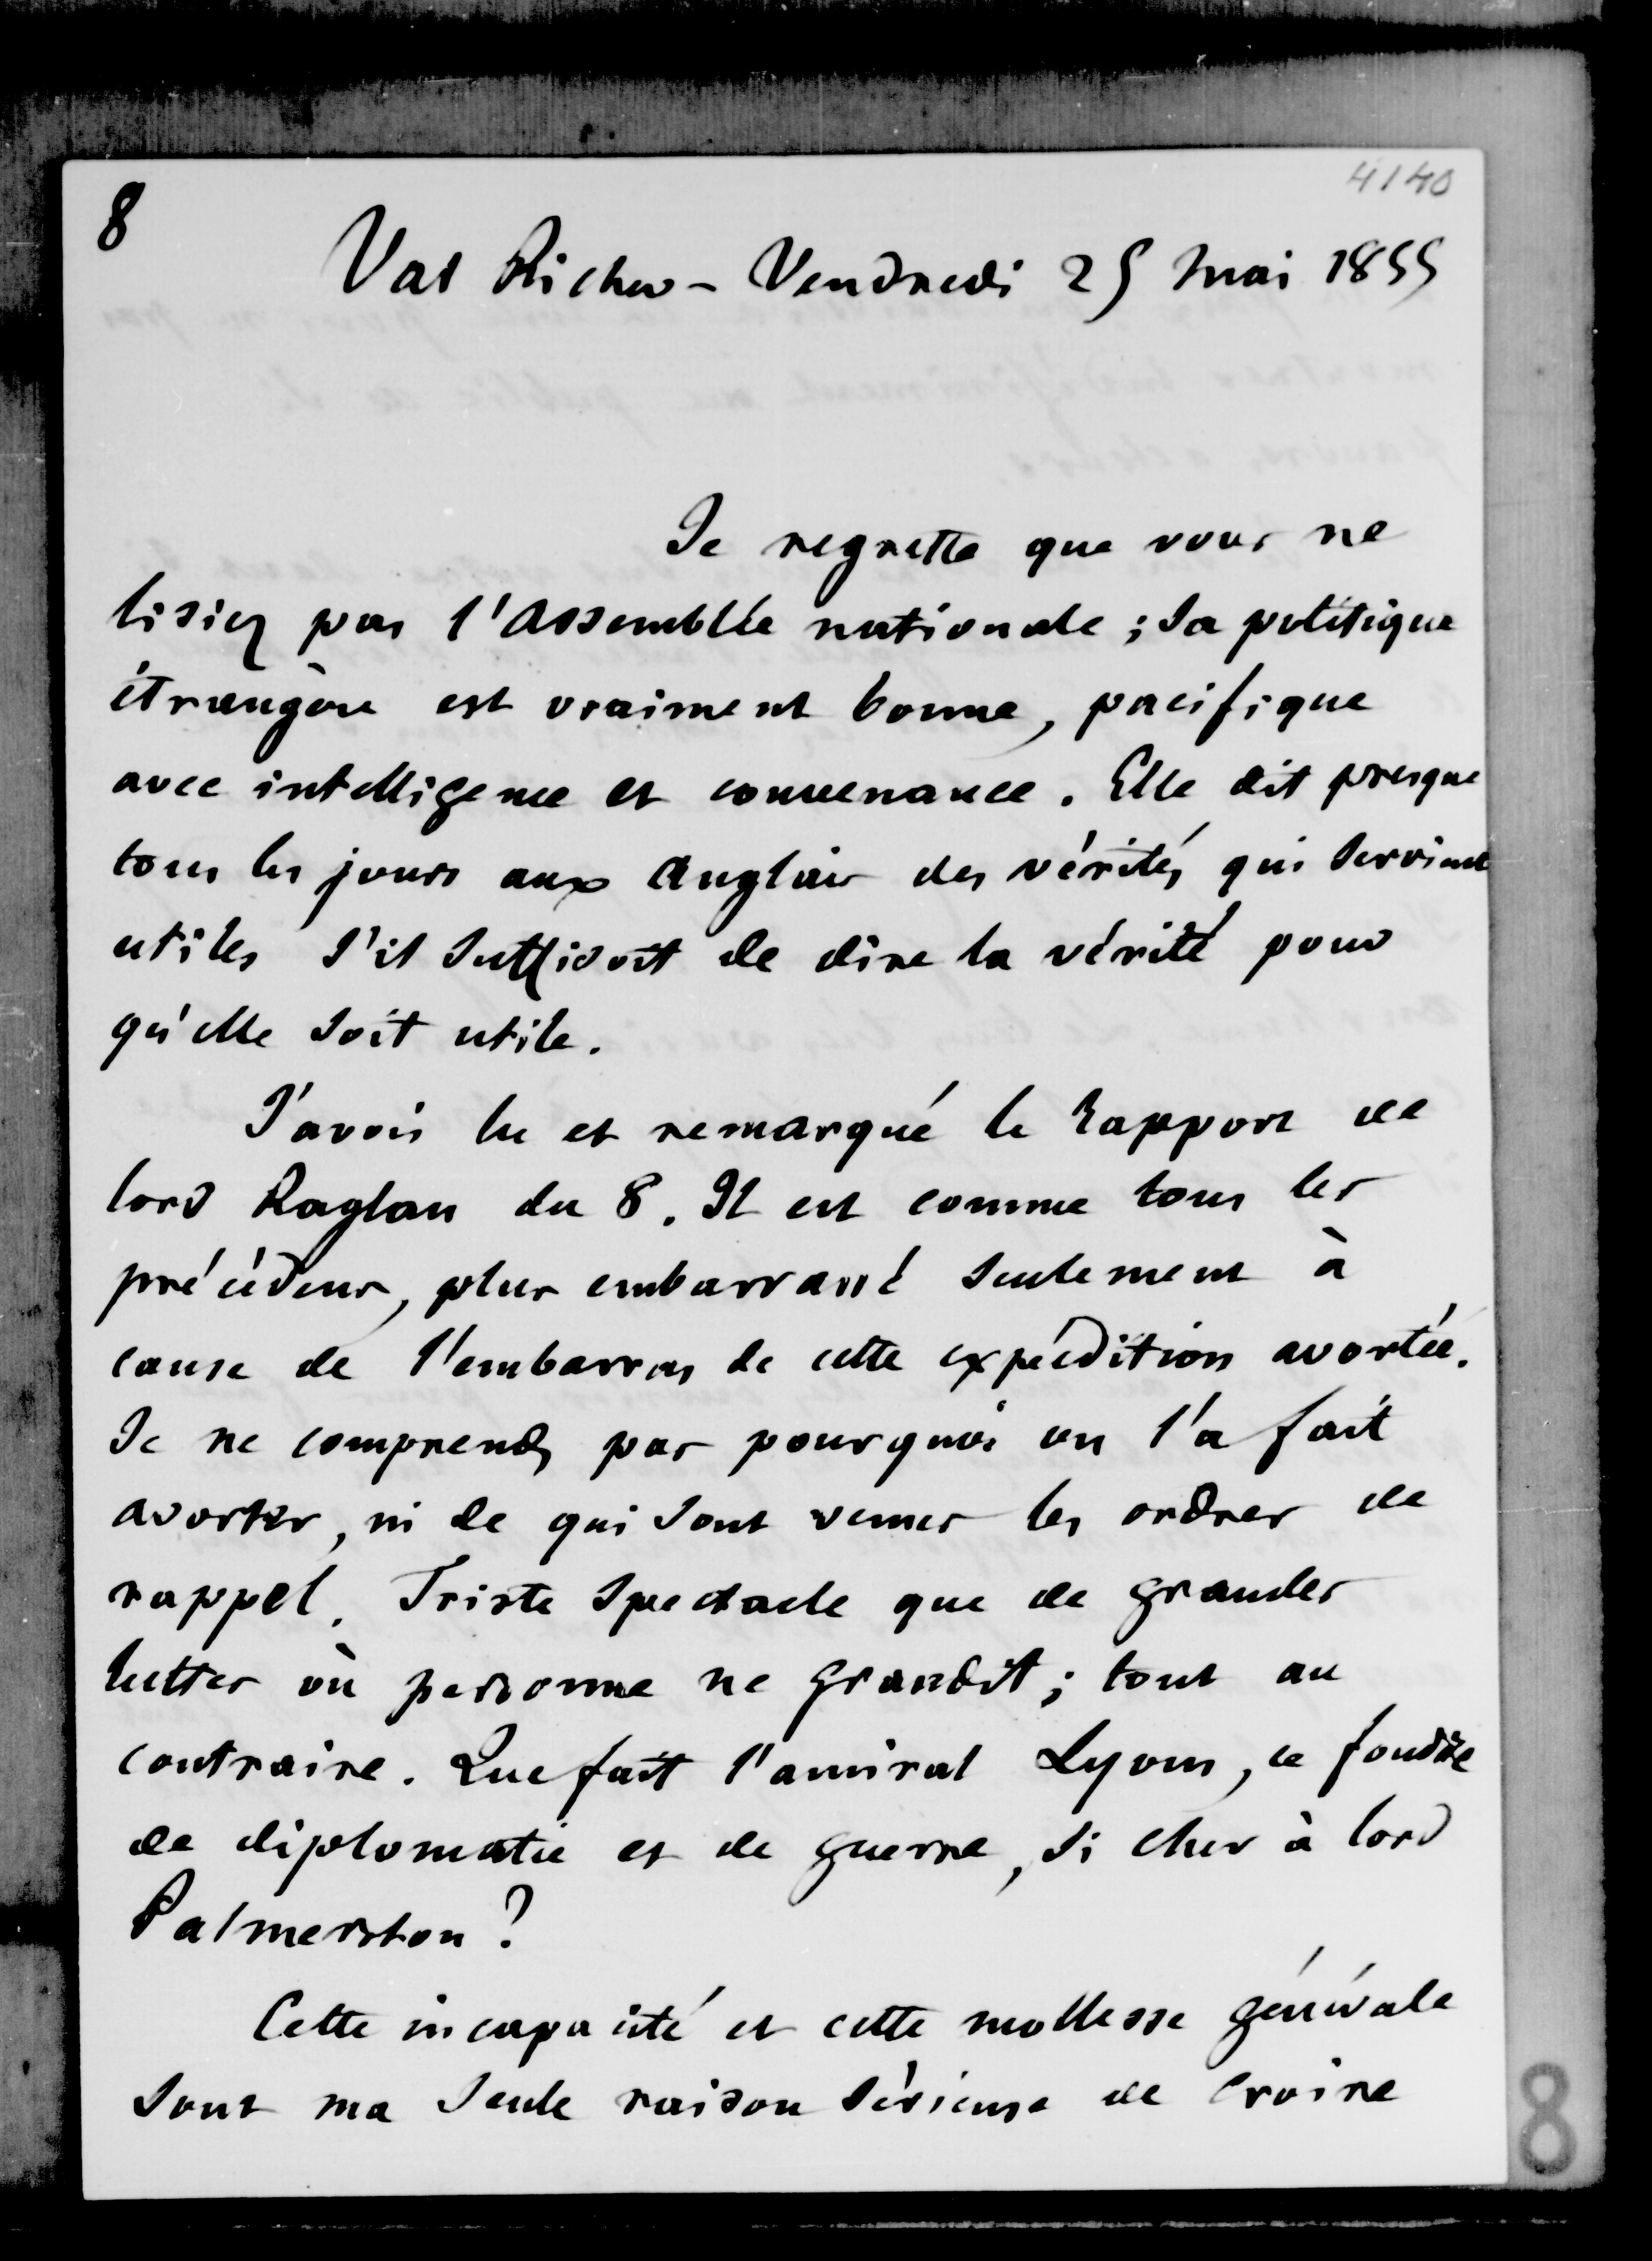 4140
8
Val Richer - Vendredi 25 mai 1855
Je regrette que vous ne
lisiez pas l'Assemblée nationale ; sa politique
étrangère est vraiment bonne, pacifique
avec intelligence et convenance. Elle dit presque
tous les jours aux Anglais des vérités qui seroient
utiles s'il suffisoit de dire la vérité pour
qu'elle soit utile.
J'avois lu et remarqué le rapport de
lord Raglan du 8. Il est comme tous les
précédens, plus embarrassé seulement à
cause de l'embarras de cette expédition avortée.
Je ne comprends pas pourquoi on l'a fait
avorter, ni de qui sont venus les ordres de
rappel. Triste spectacle que de grandes
luttes où personne ne grandit ; tout au
contraire. Que fait l'amiral Lyons, ce foudre
de diplomatie et de guerre, si cher à lord
Palmerston ?
Cette incapacité et cette mollesse générale
sont ma seule raison sérieuse de croire
8